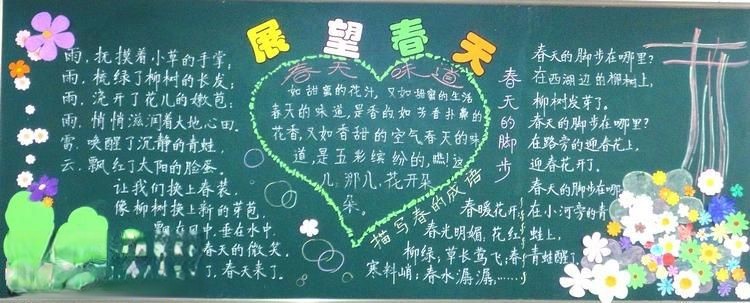 展望春天
雨，抚摸着小草的手掌，
雨，梳绿了柳树的长发；
雨，浇开了花儿的嫩苞；
雨，悄悄滋润着大地心田。
雷，唤醒了沉静的青蛙，
云，飘红了太阳的脸蛋。
让我们换上春装，
像柳树换上新的芽苞，
飘在风中，垂在水中，
春天的微笑。
了，春天来了。
春天味道
如甜蜜的花汁，又如甜蜜的生活
春天的味道，是香的如芳香扑鼻的
花香，又如香甜的空气春天的味
道，是五彩缤纷的，瞧！这
儿，那儿，花开朵
朵。
描写春的成语
春暖花开；
春光明媚，花红
柳绿；草长莺飞；春
寒料峭；春水潺潺，……
春天的脚步
春天的脚步在哪里？
在西湖边的柳树上，
柳树发芽了。
春天的脚步在哪里？
在路旁的迎春花上，
迎春花开了。
春天的脚步在哪
在小河旁的青
蛙上，
青蛙醒了